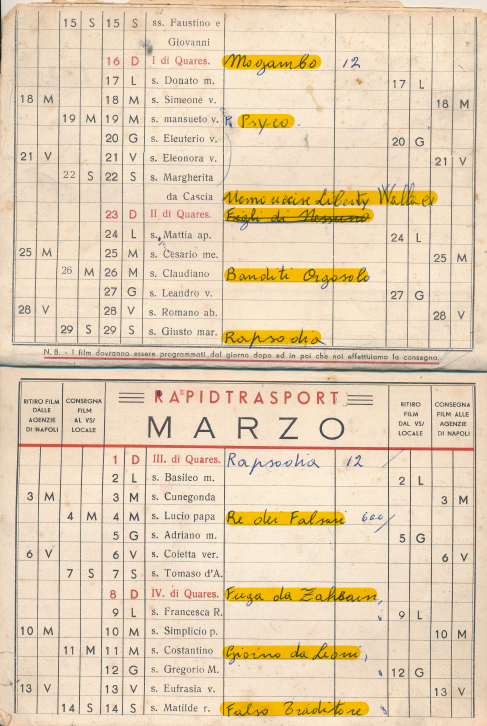 15 S 15 S ss. Faustino e
Giovanni
16 D I di Quares. Mogambo 12
17 L s. Donato m. 17 L
18 M 18 M s. Simeone v. 18 M
19 M 19 M s. mansueto v. Psyco.
20 G s. Eleuterio v. 20 G
21 V 21 V s. Eleonora v. 21 V
22 S 22 S s. Margherita
da Cascia Uomi uccise Liberty Wallace
23 D II di Quares. Figli di Nessuno
24 L s. Mattia ap. 24 L
25 M 25 M s. Cesario me. 25 M
26 M 26 M s. Claudiano Banditi Orgosolo
27 G s. Leandro v. 27 G
28 V 28 V s. Romano ab. 28 V
29 S 29 S s. Giusto mar. Rapsodia
N. B. - I film dovranno essere programmati dal giorno dopo ed in poi che noi effettuiamo la consegna.
RAPIDTRASPORT
MARZO
RITIRO FILM DALLE AGENZIE DI NAPOLI
CONSEGNA FILM AL VS/ LOCALE
RITIRO FILM DAL VS/ LOCALE
CONSEGNA FILM ALLE AGENZIE DI NAPOLI
1 D III. di Quares. Rapsodia 12
2 L s. Basileo m. 2 L
3 M 3 M s. Cunegonda 3 M
4 M 4 M s. Lucio papa Re dei Falsari 600/
5 G s. Adriano m. 5 G
6 V 6 V s. Coietta ver. 6 V
7 S 7 S s. Tomaso d'A.
8 D IV. di Quares. Fuga da Zahrain,
9 L s. Francesca R. 9 L
10 M 10 M s. Simplicio p. 10 M
11 M 11 M s. Costantino Giorno da Leoni,
12 G s. Gregorio M. 12 G
13 V 13 V s. Eufrasia v. 13 V
14 S 14 S s. Matilde r. Falso Traditore